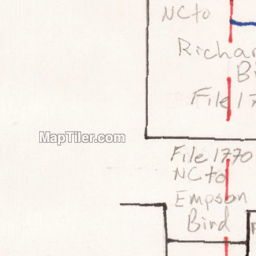 NC to
Richar
Bi
File 17
MapTiler.com
File 1770
NC to
Empson
Bird